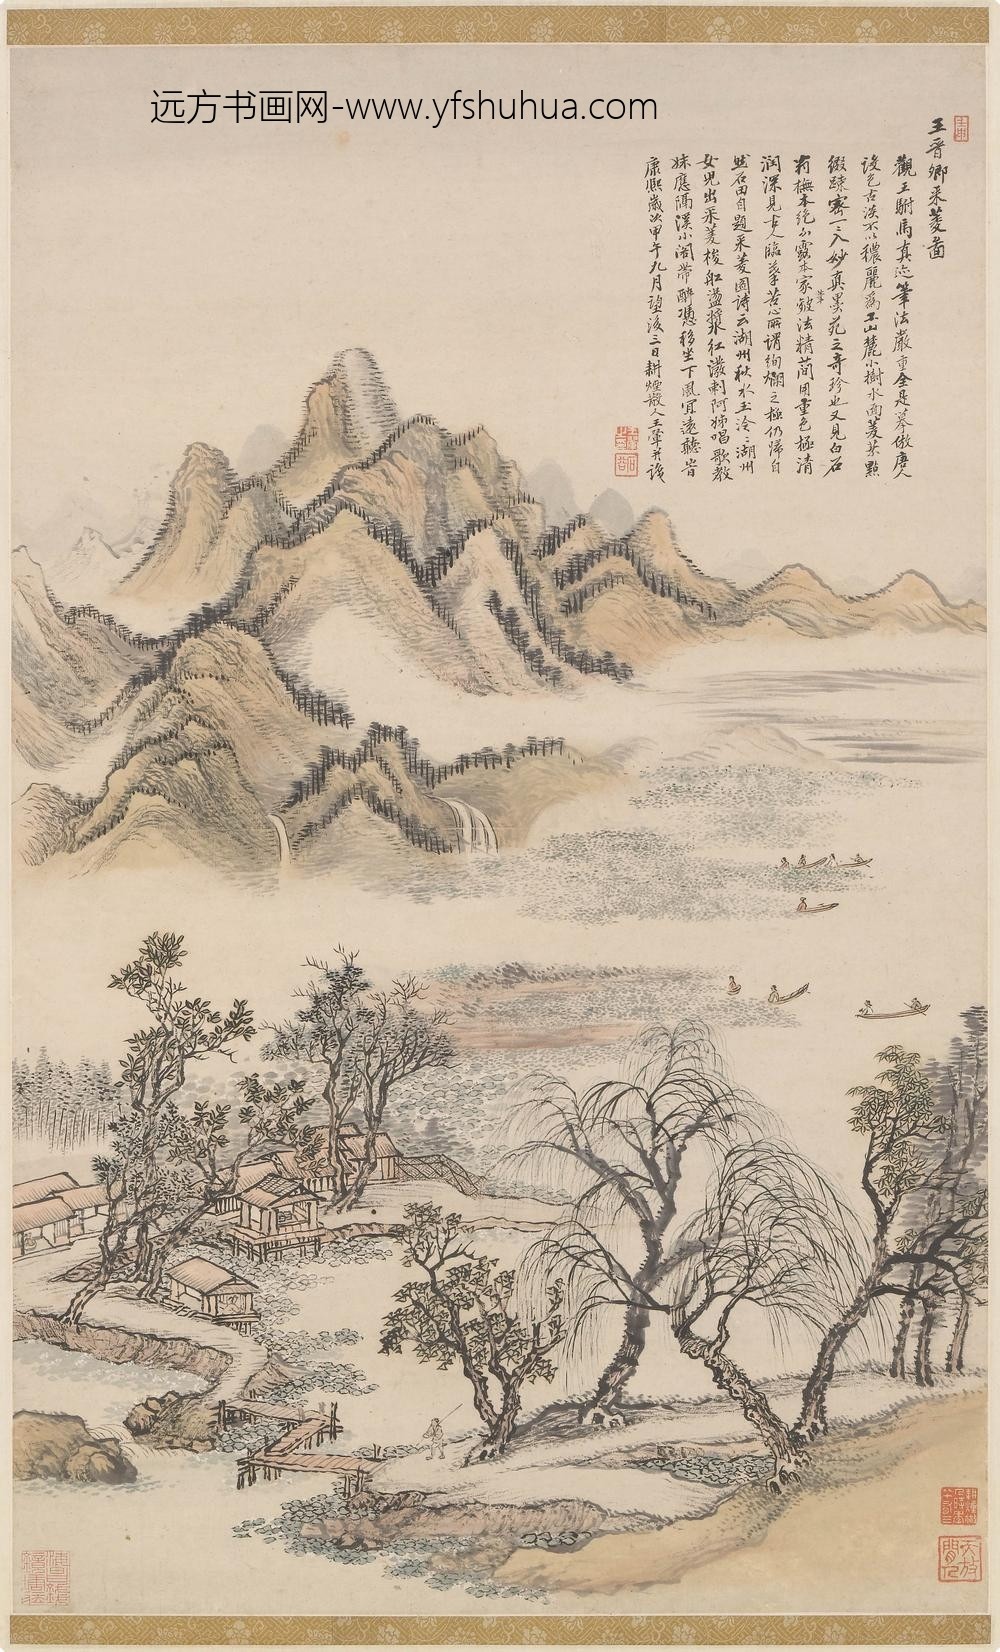 远方书画网-www.yfshuhua.com
王晉卿采菱圖
觀王駙馬真迹筆法嚴重全是摹倣唐人
設色古淡不以穠麗為工山麓小樹水面菱芡點
綴疎密一一入妙真墨苑之奇珍也又見白石
翁橅本絶不露本家筆皴法精蕳用重色極清
潤深見古人臨摹苦心所謂絢爛之極仍歸自
然石田自題采菱圖詩云湖州秋水玉泠泠湖州
女兒出采菱梭舡盪槳紅潑剌阿姊唱歌教
妹應隔溪小閣帶醉憑移坐下風宜遠聽旹
康熙歲次甲午九月望後三日耕煙散人王翬并識
天放閒人